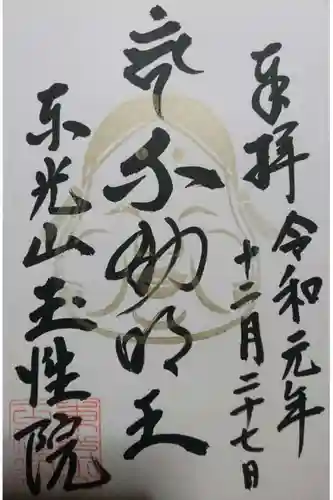 奉拝
令和元年
十二月二十七日
不動明王
东光山玉性院